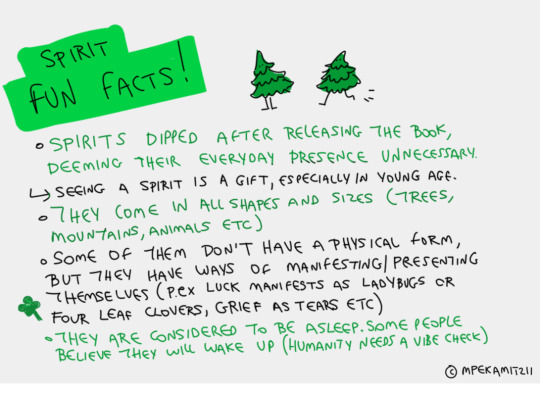 SPIRIT
FUN FACTS!
• SPIRITS DIPPED AFTER RELEASING THE BOOK,
DEEMING THEIR EVERYDAY PRESENCE UNNECESSARY.
↳ SEEING A SPIRIT IS A GIFT, ESPECIALLY IN YOUNG AGE.
• THEY COME IN ALL SHAPES AND SIZES (TREES,
MOUNTAINS, ANIMALS ETC)
• SOME OF THEM DON'T HAVE A PHYSICAL FORM,
BUT THEY HAVE WAYS OF MANIFESTING/PRESENTING
THEMSELVES (P.EX LUCK MANIFESTS AS LADYBUGS OR
FOUR LEAF CLOVERS, GRIEF AS TEARS ETC)
• THEY ARE CONSIDERED TO BE ASLEEP. SOME PEOPLE
BELIEVE THEY WILL WAKE UP (HUMANITY NEEDS A VIBE CHECK)
© MPEKAMITZII